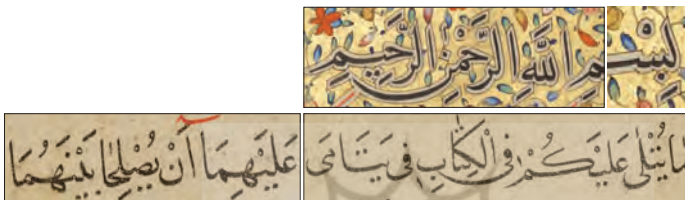 بِسْمِ اللَّهِ الرَّحْمٰنِ الرَّحِيمِ
مَا يُتْلَى عَلَيْكُمْ فِي الْكِتَابِ فِي يَتَامَى عَلَيْهِمَا أَنْ يُصْلِحَا بَيْنَهُمَا